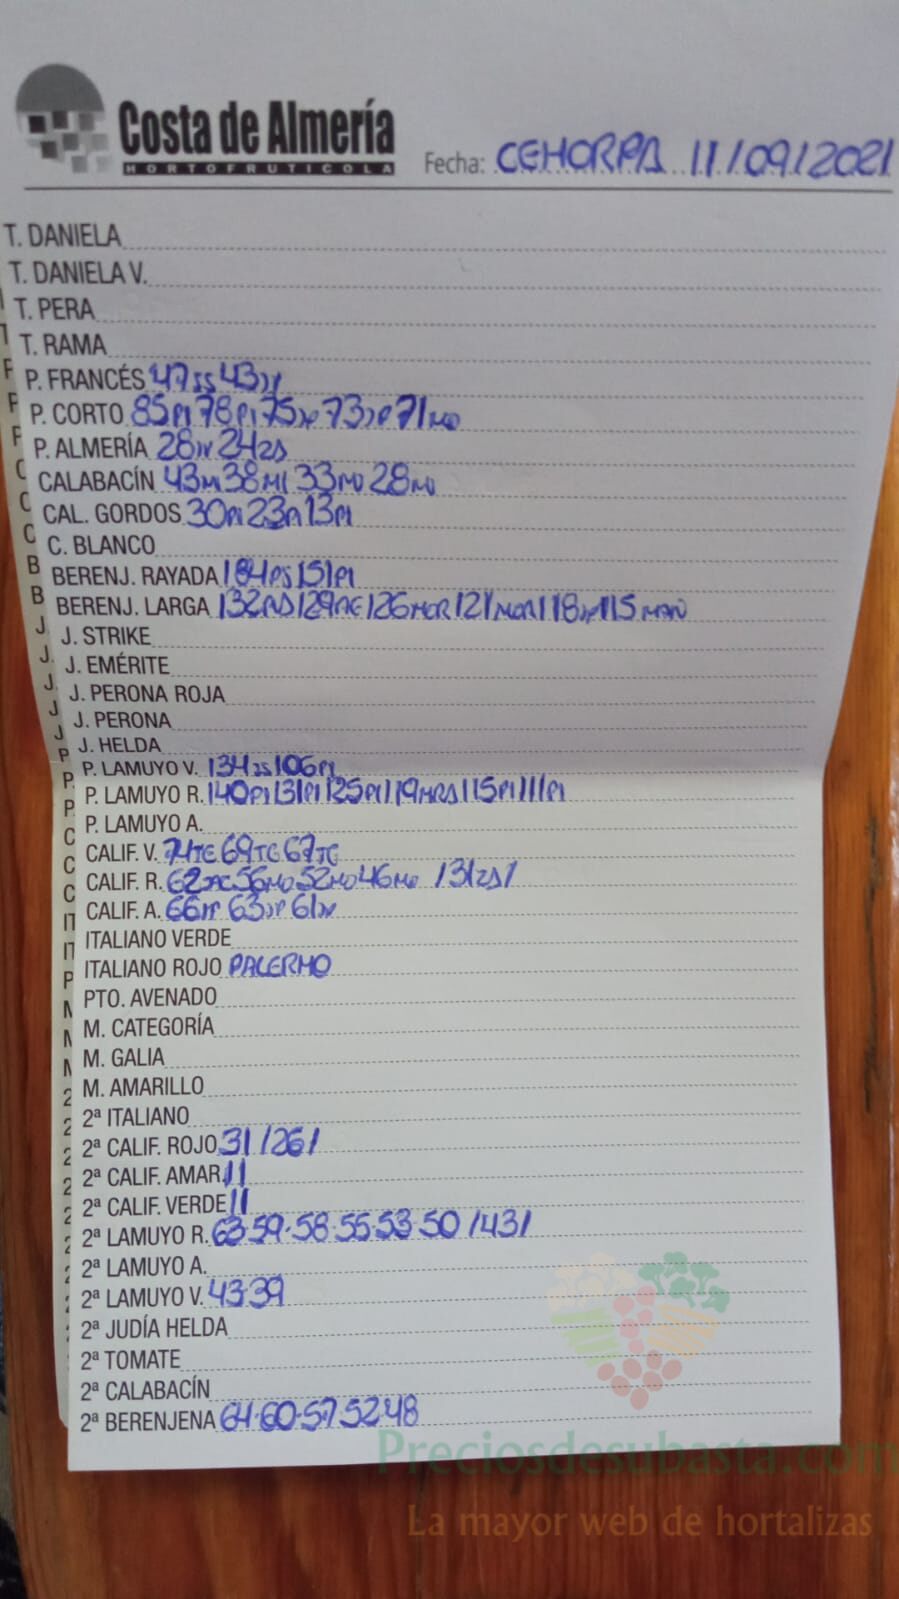 Costa de Almería
HORTOFRUTICOLA
Fecha: CEHORPA 11/09/2021
T. DANIELA
T. DANIELA V.
T. PERA
T. RAMA
P. FRANCÉS 47 43
P. CORTO 85PI 78PI 75 73 71MO
P. ALMERÍA 28 24
CALABACÍN 43 38MI 33MO 28MO
CAL. GORDOS 30PI 23PI 13PI
C. BLANCO
BERENJ. RAYADA 184 151PI
BERENJ. LARGA 132 129 126MOR 121MOR 118 115
J. STRIKE
J. EMÉRITE
J. PERONA ROJA
J. PERONA
J. HELDA
P. LAMUYO V. 134 106PI
P. LAMUYO R. 140PI 131PI 125PI 119 115PI 111PI
P. LAMUYO A.
CALIF. V. 74TG 69TG 67TG
CALIF. R. 62 56MO 52MO 46MO
CALIF. A. 66 63 61
ITALIANO VERDE
ITALIANO ROJO PALERMO
PTO. AVENADO
M. CATEGORÍA
M. GALIA
M. AMARILLO
2ª ITALIANO
2ª CALIF. ROJO 31 /26/
2ª CALIF. AMAR.
2ª CALIF. VERDE
2ª LAMUYO R. 63·59·58·55·53·50 /43/
2ª LAMUYO A.
2ª LAMUYO V. 43·39
2ª JUDÍA HELDA
2ª TOMATE
2ª CALABACÍN
2ª BERENJENA 64·60·57·52·48
Preciosdesubasta.com
La mayor web de hortalizas